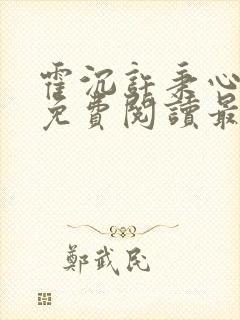 霍沉許秉心
免費閱讀最
鄭武民